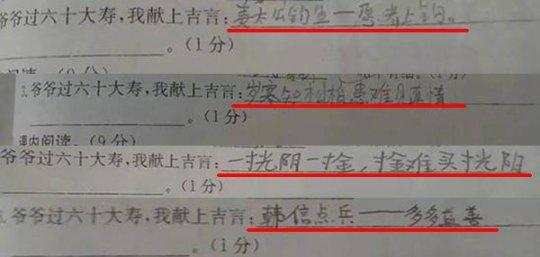 爷爷过六十大寿,我献上吉言:姜太公钓鱼一愿者上钩。
。(1分)
爷爷过六十大寿,我献上吉言:岁寒知松柏患难见真情
。(1分)
课内阅读。(9分)
爷爷过六十大寿,我献上吉言:一寸光阴一寸金,寸金难买寸光阴
。(1分)
爷爷过六十大寿,我献上吉言:韩信点兵——多多益善
。(1分)